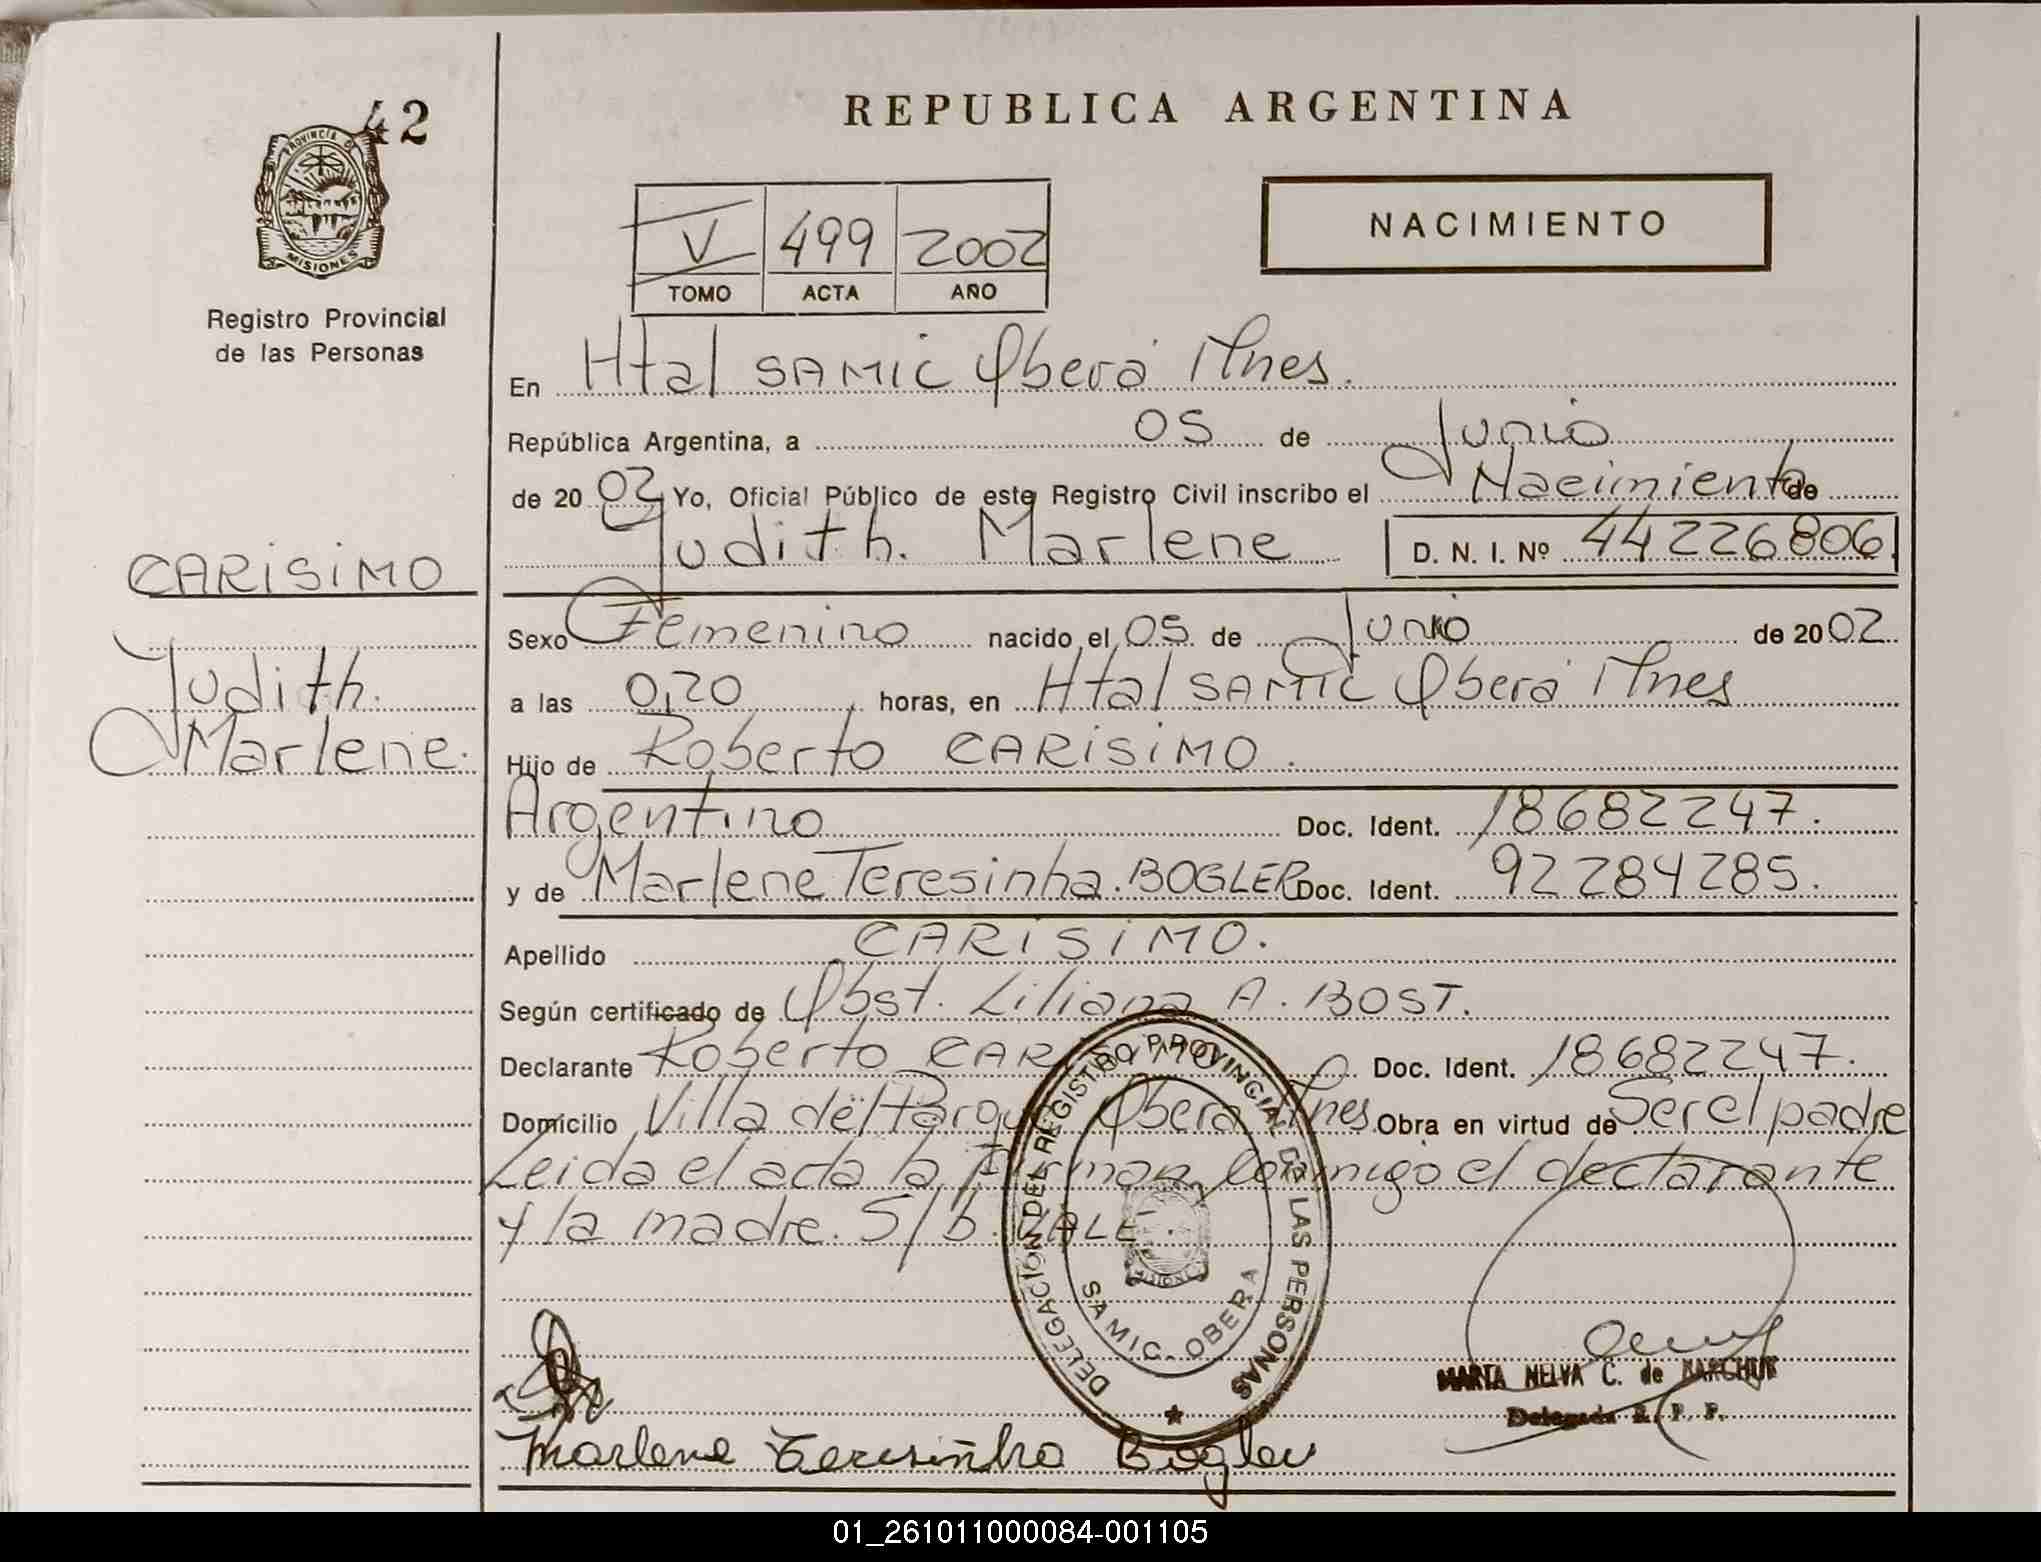 42
REPUBLICA ARGENTINA
PROVINCIA DE
MISIONES
Registro Provincial
de las Personas
V 499 2002
TOMO ACTA AÑO
NACIMIENTO
En Htal SAMIC Oberá Mnes.
República Argentina, a 05 de Junio
de 2002 Yo, Oficial Público de este Registro Civil inscribo el Nacimiento de
Judith. Marlene D. N. I. Nº 44226806
CARISIMO
Judith.
Marlene.
Sexo Femenino nacido el 05 de Junio de 2002
a las 0,20 horas, en Htal SAMIC Oberá Mnes
Hijo de Roberto CARISIMO.
Argentino Doc. Ident. 18682247.
y de Marlene Teresinha. BOGLER Doc. Ident. 92284285.
Apellido CARISIMO.
Según certificado de Obst. Liliana A. BOST.
Declarante Roberto CARISIMO Doc. Ident. 18682247.
Domicilio Villa del Parque Oberá Mnes. Obra en virtud de Ser el padre
Leida el acta la Firman conmigo el declarante
y la madre. S/b. VALE
DELEGACIÓN DEL REGISTRO PROVINCIAL DE LAS PERSONAS
SAMIC - OBERA
MISIONES
MARTA NELVA C. de
Delegada R. P. P.
Marlene Teresinha Bogler
01_261011000084-001105